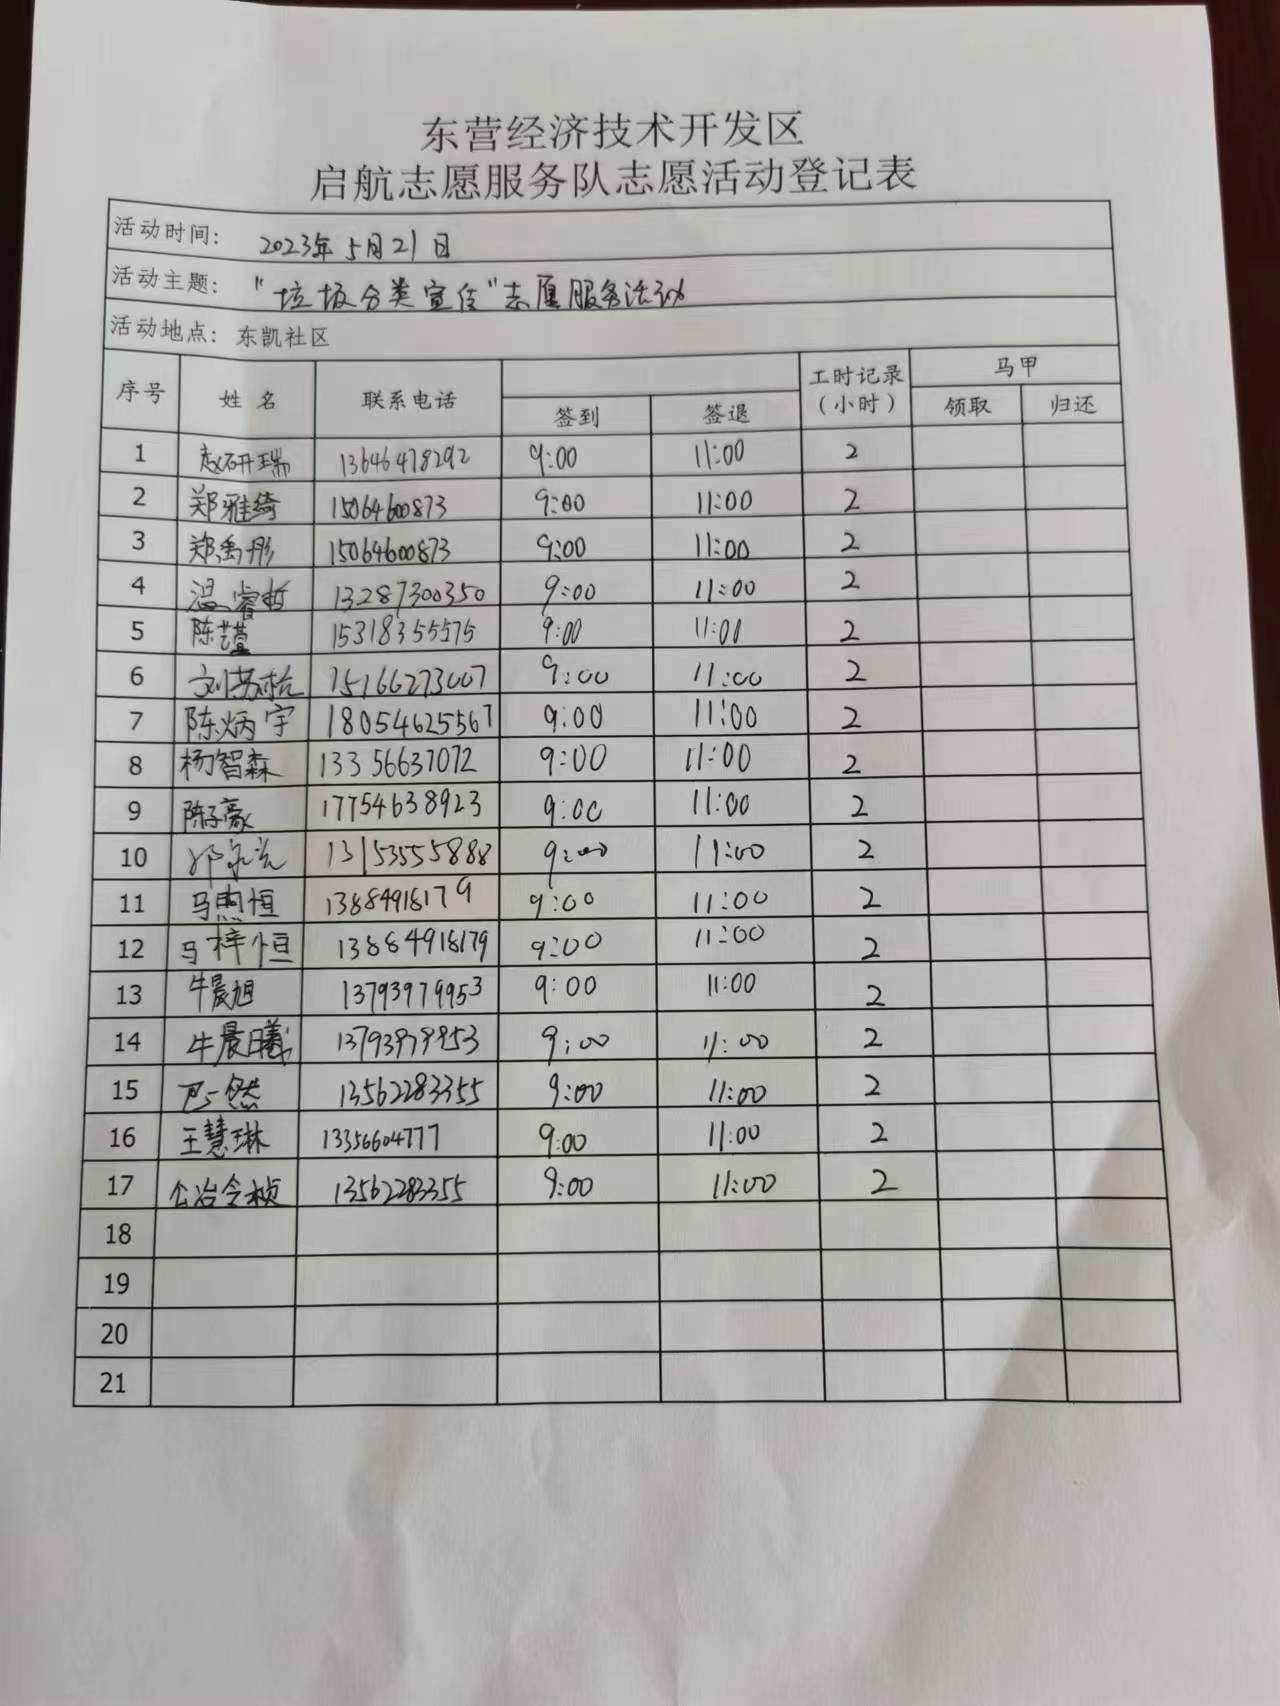 东营经济技术开发区
启航志愿服务队志愿活动登记表
活动时间: 2023年5月21日
活动主题: "垃圾分类宣传"志愿服务活动
活动地点: 东凯社区
序号 姓名 联系电话 工时记录(小时) 马甲
签到 签退 领取 归还
1 赵研瑞 13646478292 9:00 11:00 2
2 郑雅绮 15064600873 9:00 11:00 2
3 郑禹彤 15064600873 9:00 11:00 2
4 温睿哲 13287300350 9:00 11:00 2
5 陈艺萱 15318355575 9:00 11:00 2
6 刘苏杭 15166273007 9:00 11:00 2
7 陈炳宇 18054625567 9:00 11:00 2
8 杨智森 13356637072 9:00 11:00 2
9 陈子豪 17754638923 9:00 11:00 2
10 13153555888 9:00 11:00 2
11 马煦恒 13884918179 9:00 11:00 2
12 马梓恒 13884918179 9:00 11:00 2
13 牛晨旭 13793979953 9:00 11:00 2
14 牛晨曦 13793979953 9:00 11:00 2
15 13562283355 9:00 11:00 2
16 王慧琳 13356604777 9:00 11:00 2
17 公冶令桢 13562283355 9:00 11:00 2
18
19
20
21